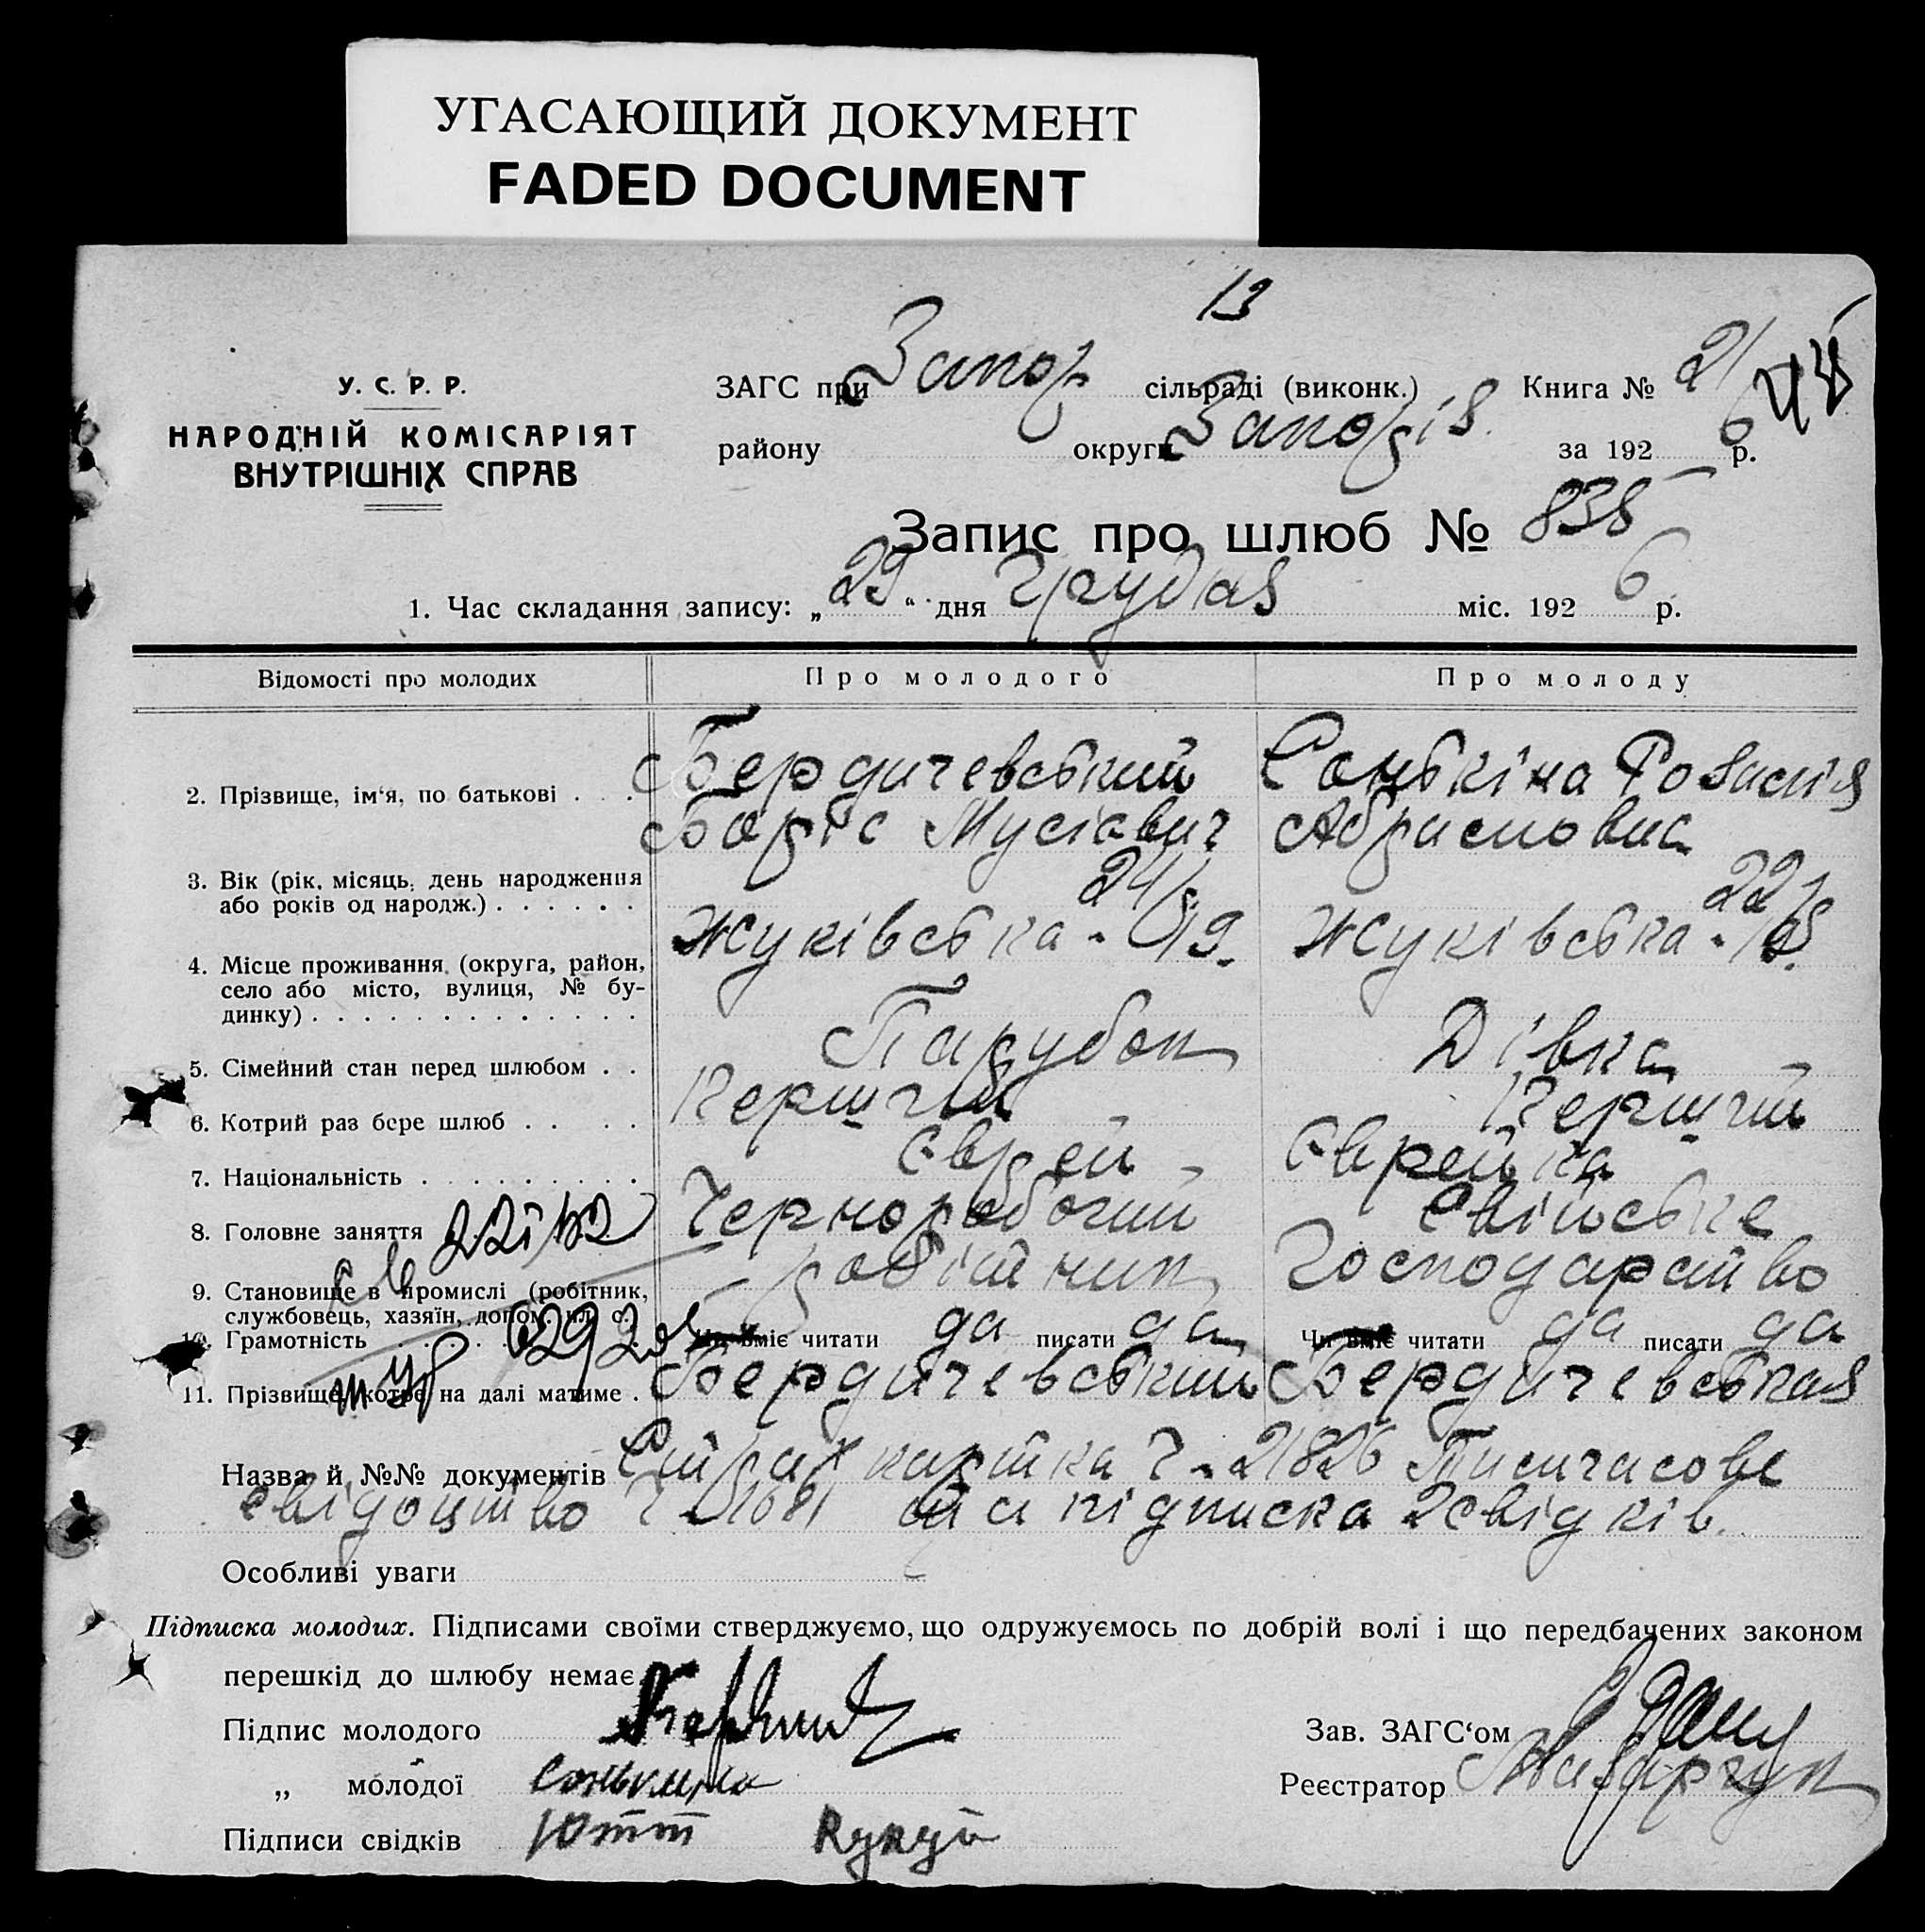 УГАСАЮЩИЙ ДОКУМЕНТ
FADED DOCUMENT
13
У. С. Р. Р.
НАРОДНІЙ КОМІСАРІЯТ
ВНУТРІШНІХ СПРАВ
ЗАГС при Запор сільраді (виконк.) Книга № 21
району округи Запоріз. за 1926 р.
Запис про шлюб № 838
1. Час складання запису: „29“ дня Грудня міс. 1926 р.
Відомості про молодих Про молодого Про молоду
2. Прізвище, ім‘я, по батькові . . . Бердичевський Сонькіна Розалія
Борис Мусієвич Абрамовна
3. Вік (рік, місяць, день народження
або років од народж.) . . . . . . 24 22
4. Місце проживання (округа, район,
село або місто, вулиця, № бу-
динку) . . . . . . . . . . . . . Жуківська - 49. Жуківська -
5. Сімейний стан перед шлюбом . . Парубок Дівка
6. Котрий раз бере шлюб . . . . Перший Перший
7. Національність . . . . . . . . . Єврей Єврейка
8. Головне заняття Чорноробочий Свійське
9. Становище в промислі (робітник,
службовець, хазяїн, допом. чл. с.) робітник Господарство
10. Грамотність . . . Чи вміє читати да писати да Чи вміє читати да писати да
11. Прізвище, котре на далі матиме . Бердичевський Бердичевская
Назва й №№ документів Страх картка Ч - 21826 Тимчасове
свідоцтво Ч - та підписка 2 свідків.
Особливі уваги
Підписка молодих. Підписами своїми стверджуємо, що одружуємось по добрій волі і що передбачених законом
перешкід до шлюбу немає
Підпис молодого Зав. ЗАГС‘ом
„ молодої Сонькина Реєстратор
Підписи свідків